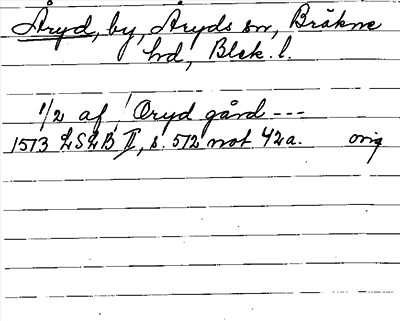 Åryd, by, Åryds sn, Bräkne
hd, Blek. l.
1/2 af ! Oryd gård ---
1573 LSLB II, s. 572 not 42a. orig